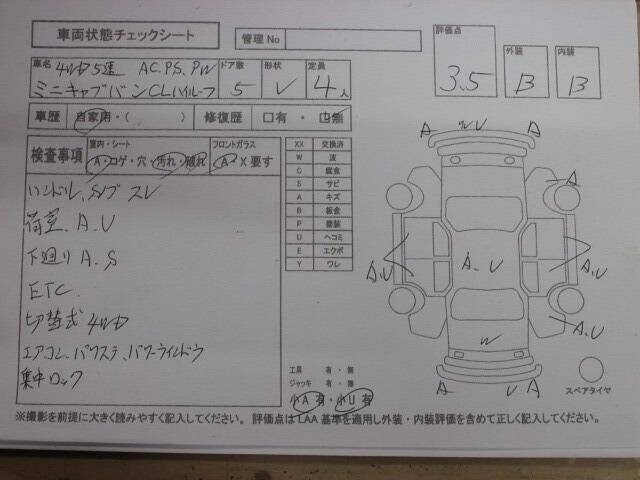 車両状態チェックシート
管理No
評価点
3.5
外装
B
内装
B
車名
4WD 5速 AC.PS.PW
ミニキャブバンCLハイルーフ
ドア数
5
形状
V
定員
4人
車歴
自家用・( )
修復歴
□有・□無
検査事項
室内・シート
A・コゲ・穴・汚れ・破れ
フロントガラス
A X要す
ハンドル、S/ブ スレ
荷室、A.U
下廻り A.S
ETC
切替式 4WD
エアコン、パワステ、パワーウィンドウ
集中ロック
XX 交換済
W 波
C 腐食
S サビ
A キズ
B 板金
P 塗装
U ヘコミ
E エクボ
Y ワレ
A
W U
A
A
A.U
A.U
A.U
A.U
W
A
U U
A
工具 有・無
ジャッキ 有・無
小A 有・小U 有
スペアタイヤ
※撮影を前提に大きく読みやすく記入してください。評価点はLAA基準を適用し外装・内装評価を含めて正しく記入してください。